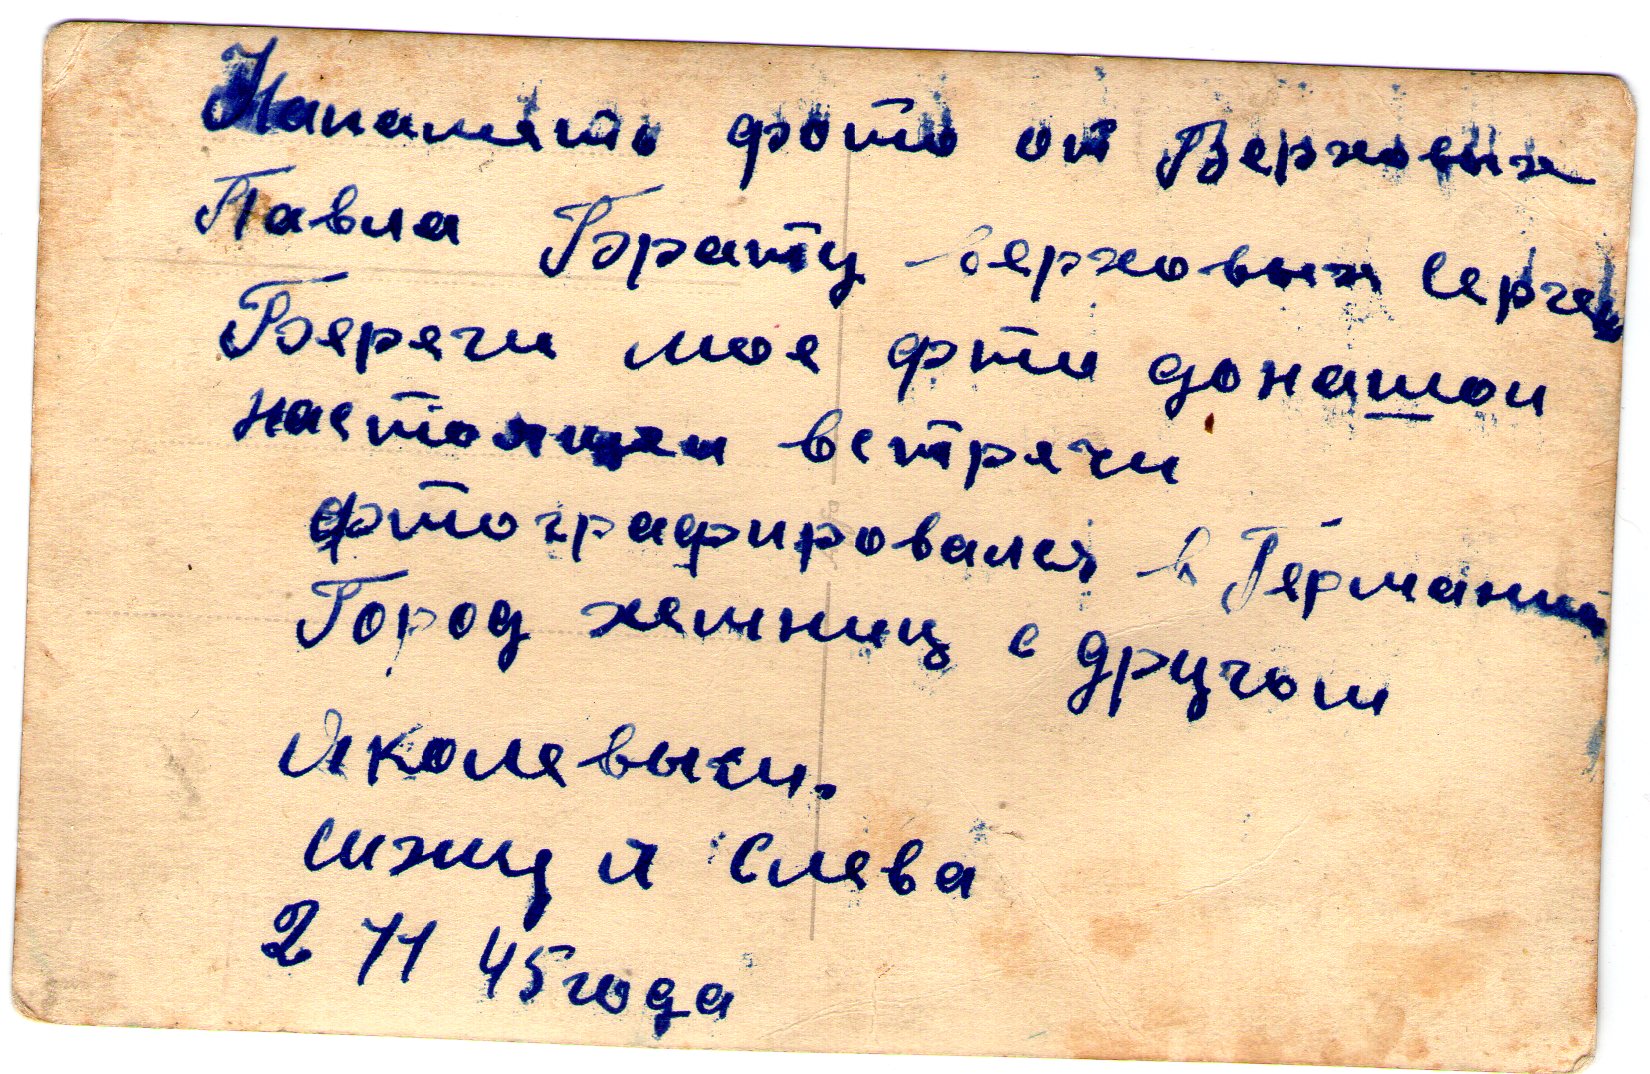 Напамять фото от Верховых
Павла Брату Верховых Сергею
Беречи мое фти донашои
настоящеи встречи
фтографировался в Германии
Город хемниц с другом
Яколевым.
сижу я слева
2 11 45 года